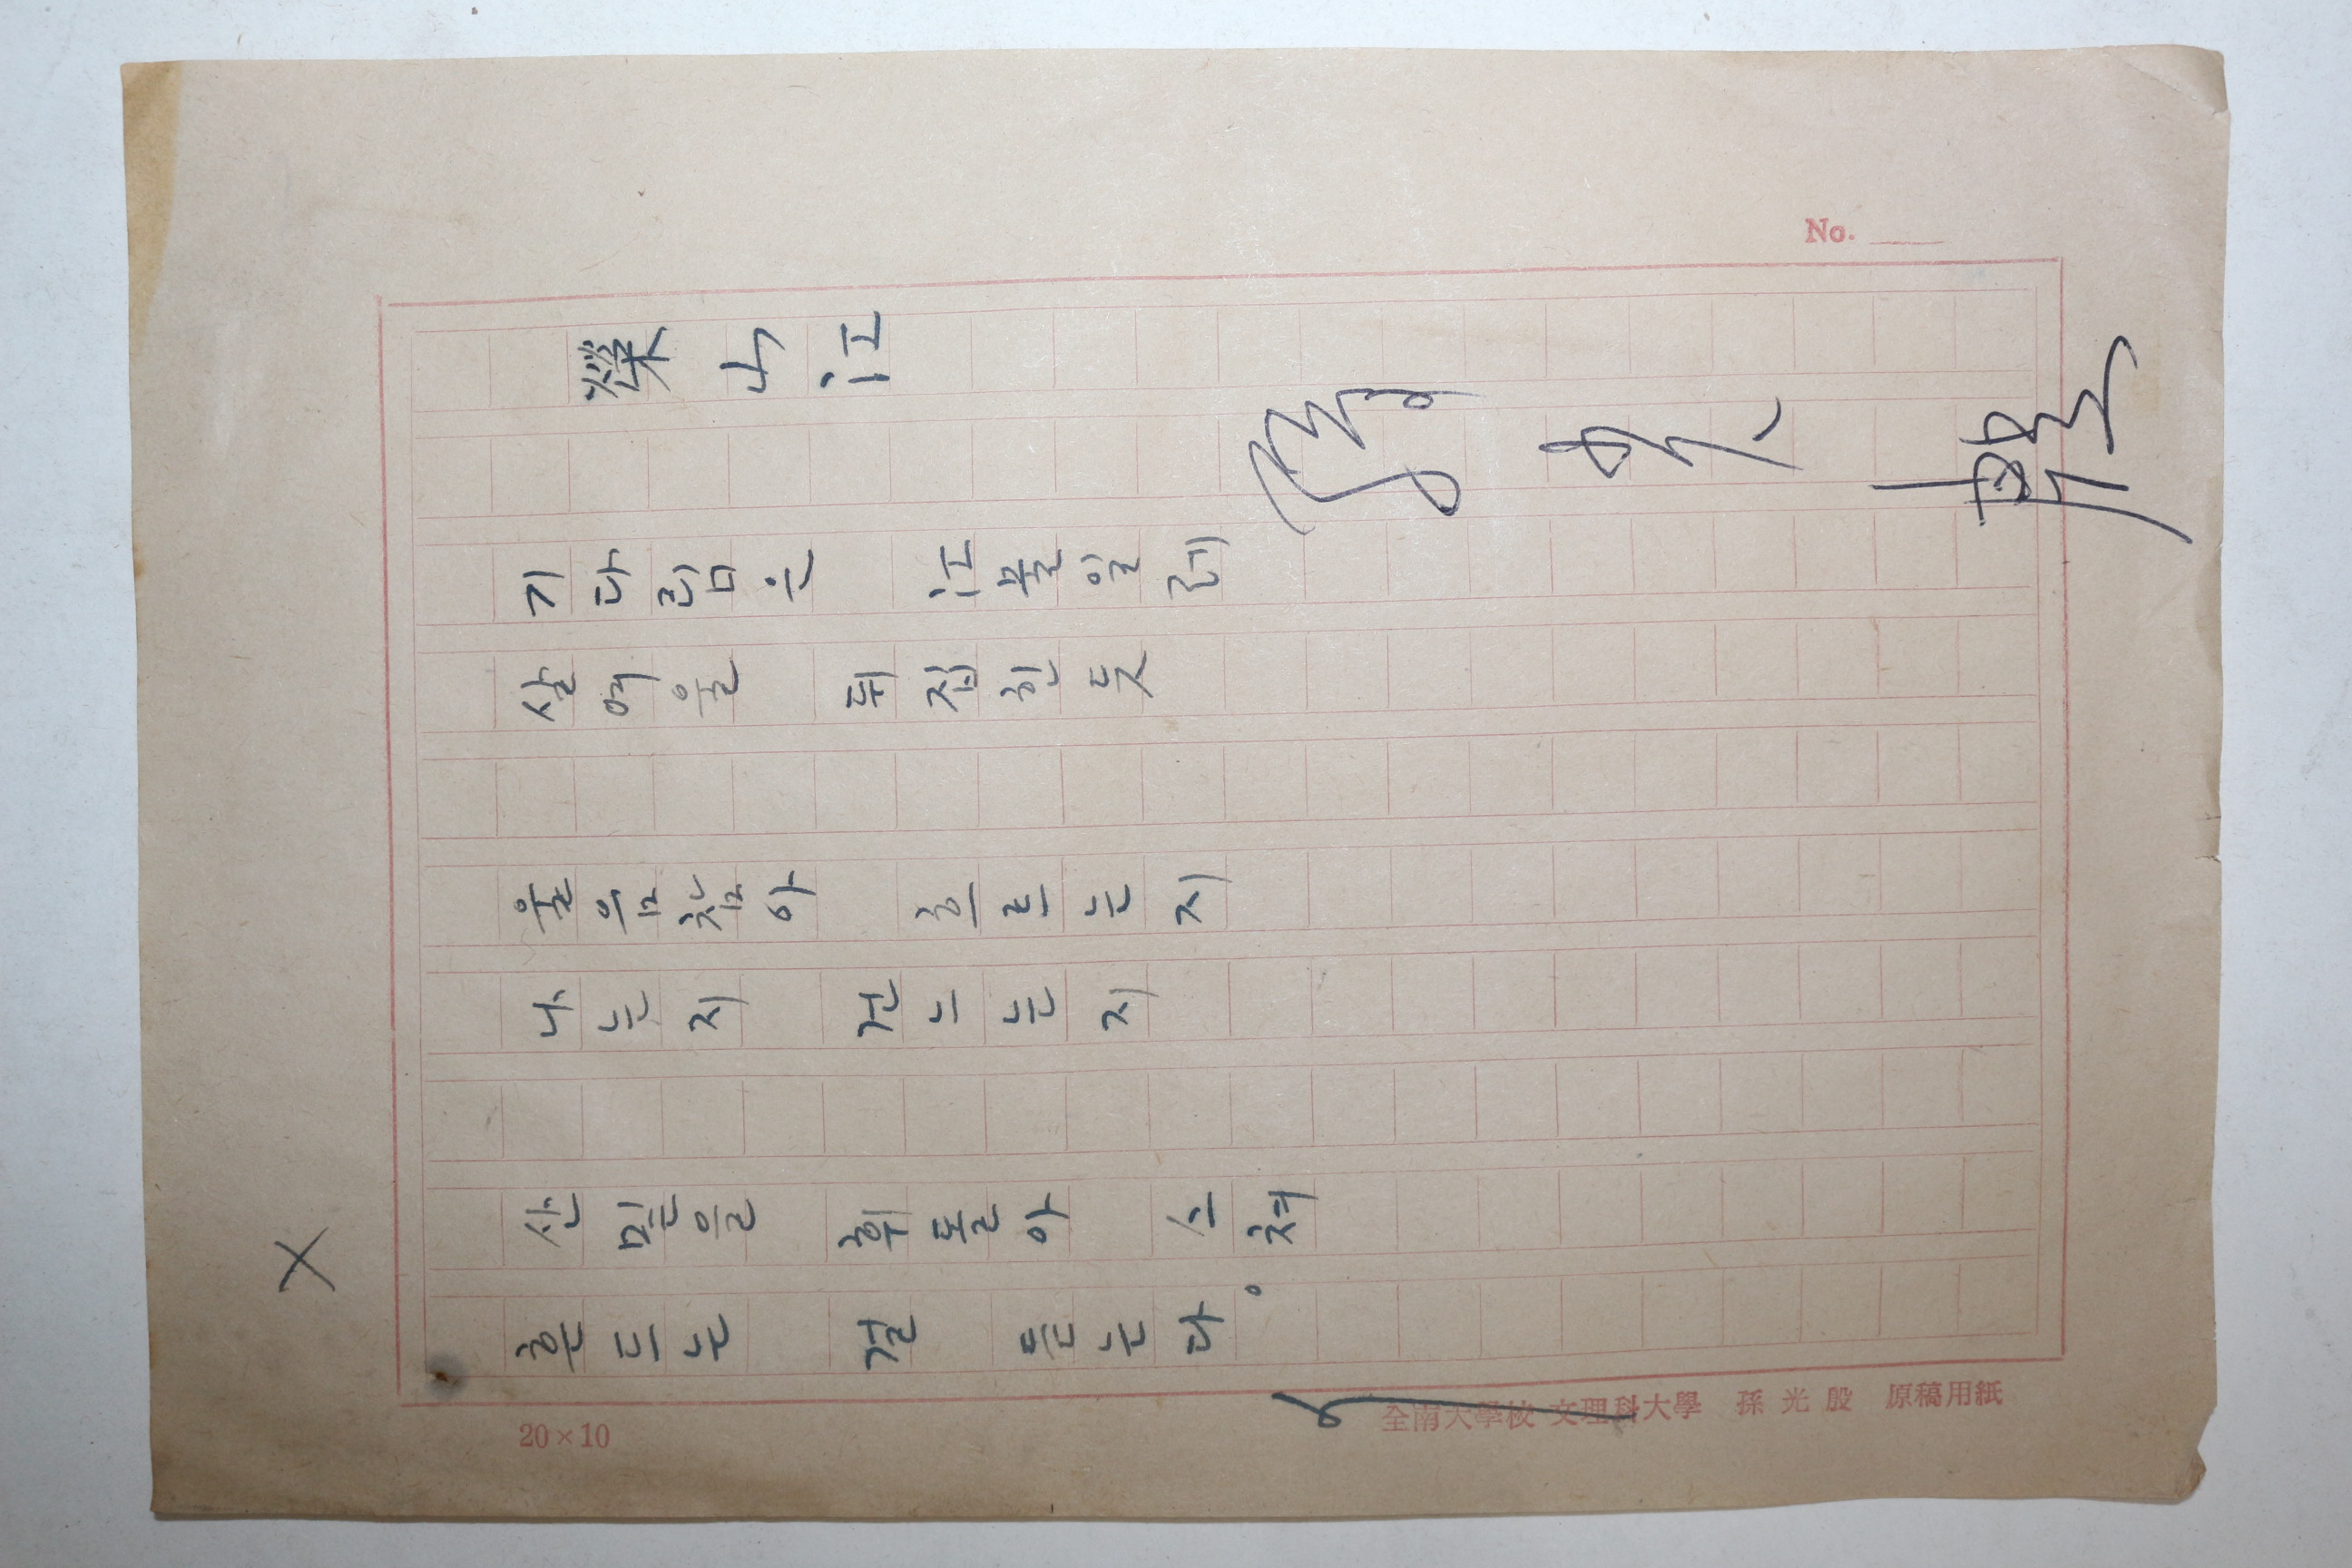 榮山江
기다림은 江물일레
살여울 뒤집힌듯
울음참아 흐르는지
나는지 건느는지
산밑을 휘돌아 스쳐
흔드는 걸 듣는다。
X
No.
20×10
全南大學校 文理科大學 孫光殷 原稿用紙